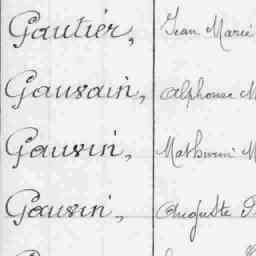 Gautier, Jean Marie
Gauvain, Alphonse M
Gauvin, Mathurin M
Gauvin, Auguste P